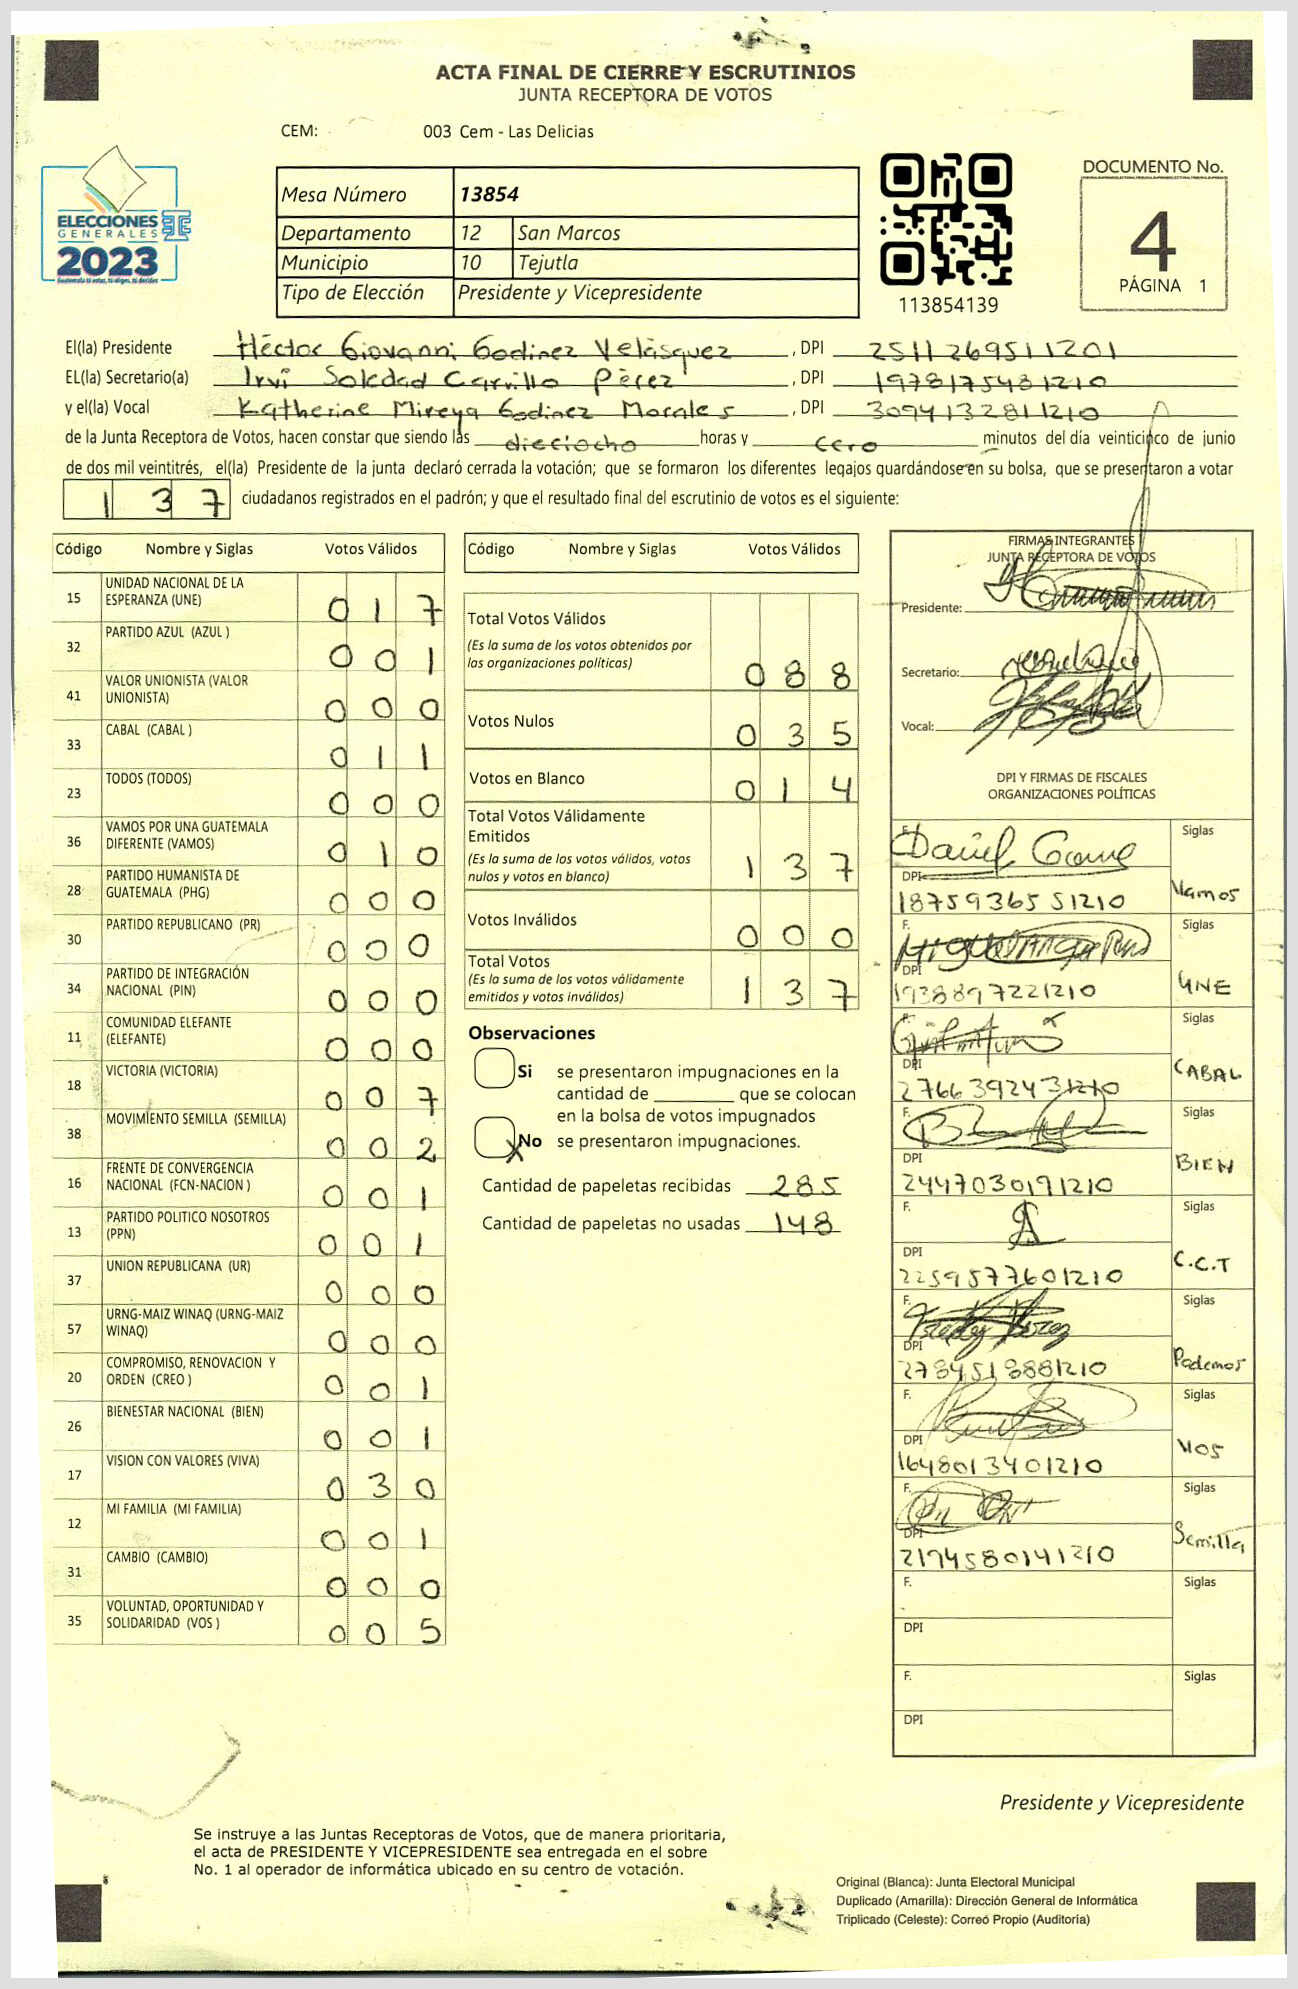 ACTA FINAL DE CIERRE Y ESCRUTINIOS
JUNTA RECEPTORA DE VOTOS
CEM: 003 Cem - Las Delicias
ELECCIONES
GENERALES
2023
Guatemala tú votas, tú eliges, tú decides
Mesa Número 13854
Departamento 12 San Marcos
Municipio 10 Tejutla
Tipo de Elección Presidente y Vicepresidente
113854139
DOCUMENTO No.
4
PÁGINA 1
El(la) Presidente Héctor Giovanni Godinez Velásquez , DPI 2511269511201
EL(la) Secretario(a) Irvi Soledad Carrillo Pérez , DPI 1978175431210
y el(la) Vocal Katherine Mireya Godinez Morales , DPI 3094132811210
de la Junta Receptora de Votos, hacen constar que siendo las dieciocho horas y cero minutos del día veinticinco de junio
de dos mil veintitrés, el(la) Presidente de la junta declaró cerrada la votación; que se formaron los diferentes legajos guardándose en su bolsa, que se presentaron a votar
137 ciudadanos registrados en el padrón; y que el resultado final del escrutinio de votos es el siguiente:
Código Nombre y Siglas Votos Válidos
15 UNIDAD NACIONAL DE LA
ESPERANZA (UNE) 017
32 PARTIDO AZUL (AZUL ) 001
41 VALOR UNIONISTA (VALOR
UNIONISTA) 000
33 CABAL (CABAL ) 011
23 TODOS (TODOS) 000
36 VAMOS POR UNA GUATEMALA
DIFERENTE (VAMOS) 010
28 PARTIDO HUMANISTA DE
GUATEMALA (PHG) 000
30 PARTIDO REPUBLICANO (PR) 000
34 PARTIDO DE INTEGRACIÓN
NACIONAL (PIN) 000
11 COMUNIDAD ELEFANTE
(ELEFANTE) 000
18 VICTORIA (VICTORIA) 007
38 MOVIMIENTO SEMILLA (SEMILLA) 002
16 FRENTE DE CONVERGENCIA
NACIONAL (FCN-NACION ) 001
13 PARTIDO POLITICO NOSOTROS
(PPN) 001
37 UNION REPUBLICANA (UR) 000
57 URNG-MAIZ WINAQ (URNG-MAIZ
WINAQ) 000
20 COMPROMISO, RENOVACION Y
ORDEN (CREO ) 001
26 BIENESTAR NACIONAL (BIEN) 001
17 VISION CON VALORES (VIVA) 030
12 MI FAMILIA (MI FAMILIA) 001
31 CAMBIO (CAMBIO) 000
35 VOLUNTAD, OPORTUNIDAD Y
SOLIDARIDAD (VOS ) 005
Código Nombre y Siglas Votos Válidos
Total Votos Válidos
(Es la suma de los votos obtenidos por
las organizaciones políticas) 088
Votos Nulos 035
Votos en Blanco 014
Total Votos Válidamente
Emitidos
(Es la suma de los votos válidos, votos
nulos y votos en blanco) 137
Votos Inválidos 000
Total Votos
(Es la suma de los votos válidamente
emitidos y votos inválidos) 137
Observaciones
Si se presentaron impugnaciones en la
cantidad de ________ que se colocan
en la bolsa de votos impugnados
X No se presentaron impugnaciones.
Cantidad de papeletas recibidas 285
Cantidad de papeletas no usadas 148
FIRMAS INTEGRANTES
JUNTA RECEPTORA DE VOTOS
Presidente:
Secretario:
Vocal:
DPI Y FIRMAS DE FISCALES
ORGANIZACIONES POLÍTICAS
F. Daniel Siglas
DPI
1875936551210 Vamos
F. Siglas
DPI
1938897221210 UNE
F. Siglas
DPI
2766392431210 CABAL
F. Siglas
DPI
2447030191210 BIEN
F. Siglas
DPI
2259577601210 C.C.T
F. Siglas
DPI
2784518881210 Podemos
F. Siglas
DPI
1648013401210 VOS
F. Siglas
DPI
2174580141210 Semilla
F. Siglas
DPI
F. Siglas
DPI
Presidente y Vicepresidente
Se instruye a las Juntas Receptoras de Votos, que de manera prioritaria,
el acta de PRESIDENTE Y VICEPRESIDENTE sea entregada en el sobre
No. 1 al operador de informática ubicado en su centro de votación.
Original (Blanca): Junta Electoral Municipal
Duplicado (Amarilla): Dirección General de Informática
Triplicado (Celeste): Correo Propio (Auditoría)